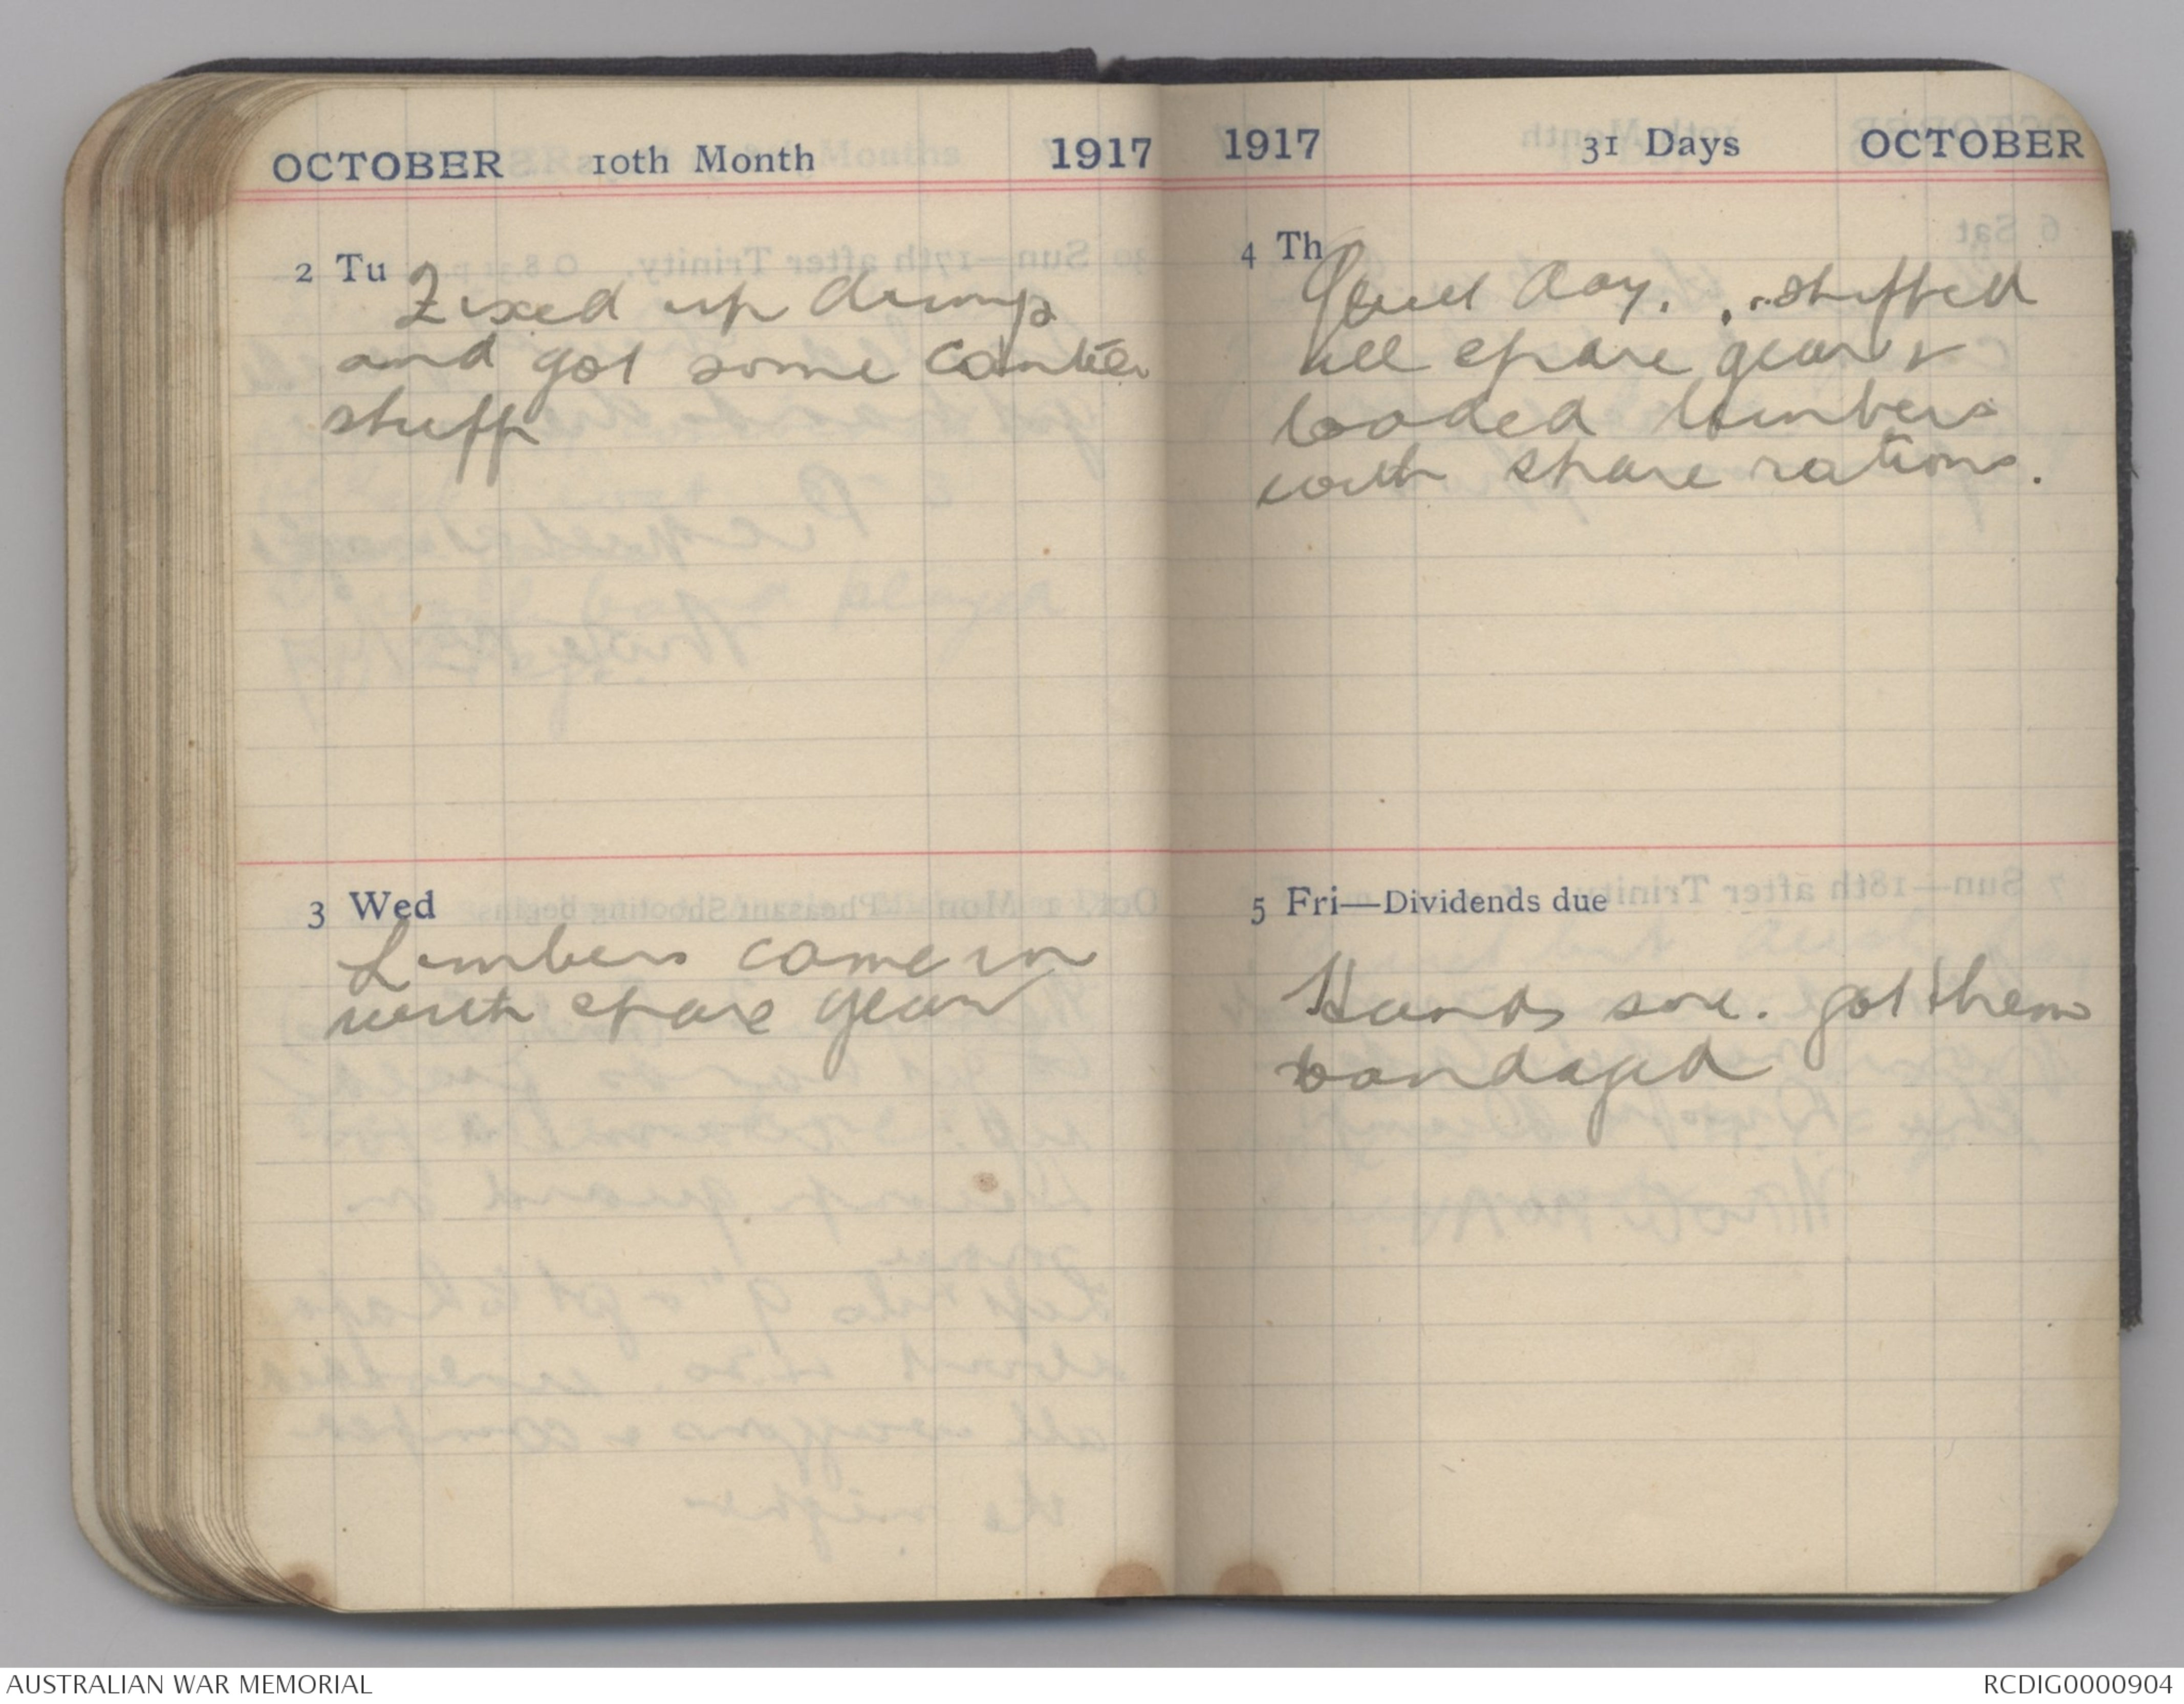 OCTOBER 10th Month 1917
2 Tu
Fixed up dump
and got some canteen
stuff
3 Wed
Limbers came in
with spare gear
1917 31 Days OCTOBER
4 Th
day. shifted
all spare gear &
loaded limbers
with spare rations.
5 Fri—Dividends due
Hands sore. got them
bandaged
AUSTRALIAN WAR MEMORIAL
RCDIG0000904